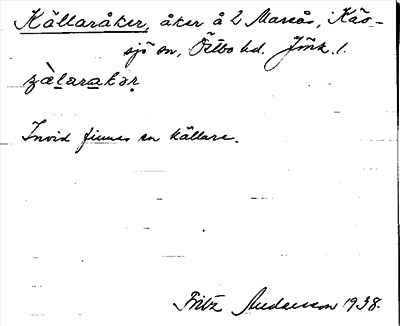 Källaråker, åker å 2 Marsås, Kåv-
sjö sn, Östbo hd. Jönk. l.
Invid finnes en källare.
Fritz Andersson 1938.